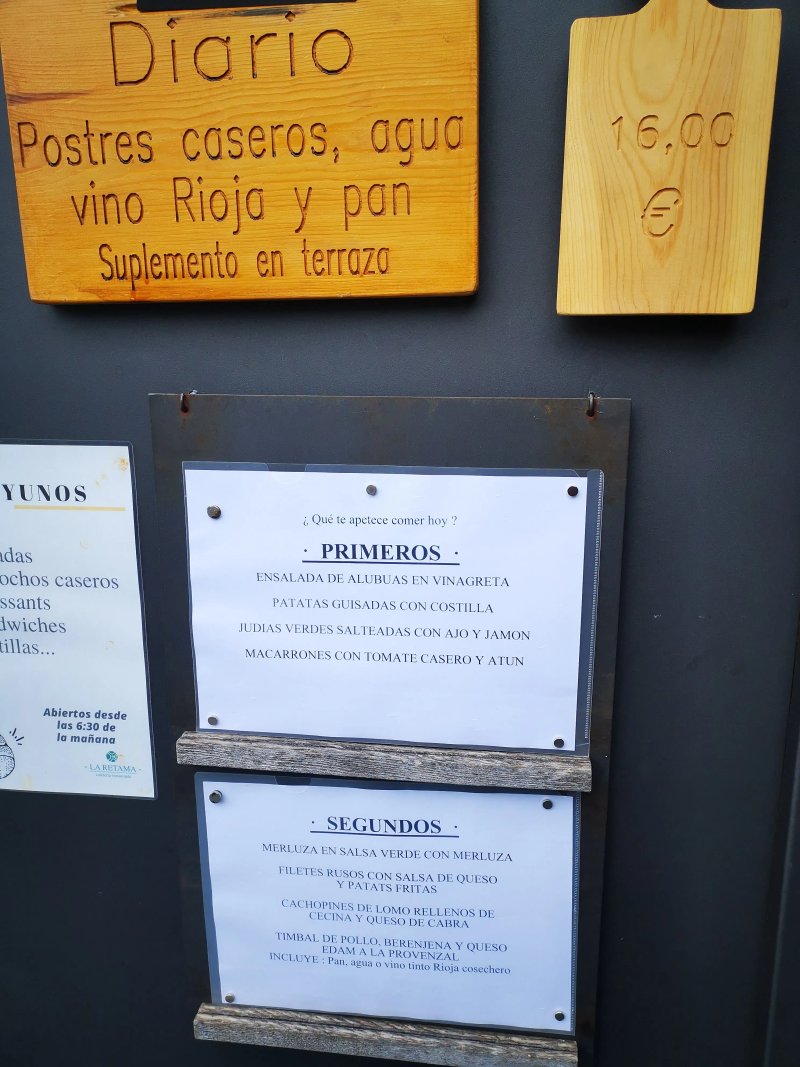 Diario
Postres caseros, agua
vino Rioja y pan
Suplemento en terraza
16,00
€
YUNOS
adas
ochos caseros
ssants
dwiches
tillas...
Abiertos desde
las 6:30 de
la mañana
LA RETAMA
¿ Qué te apetece comer hoy ?
· PRIMEROS ·
ENSALADA DE ALUBUAS EN VINAGRETA
PATATAS GUISADAS CON COSTILLA
JUDIAS VERDES SALTEADAS CON AJO Y JAMON
MACARRONES CON TOMATE CASERO Y ATUN
· SEGUNDOS ·
MERLUZA EN SALSA VERDE CON MERLUZA
FILETES RUSOS CON SALSA DE QUESO
Y PATATS FRITAS
CACHOPINES DE LOMO RELLENOS DE
CECINA Y QUESO DE CABRA
TIMBAL DE POLLO, BERENJENA Y QUESO
EDAM A LA PROVENZAL
INCLUYE : Pan, agua o vino tinto Rioja cosechero